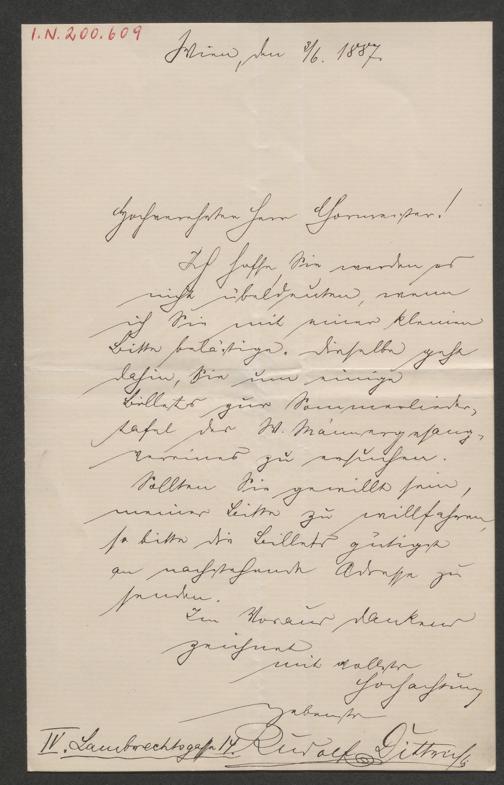 I.N. 200.609
Wien, den 2/6. 1887.
Hochverehrter Herr Chormeister!
Ich hoffe, Sie werden es
nicht übeldeuten, wenn
ich Sie mit einer kleinen
Bitte belästige. Dieselbe geht
dahin, Sie um einige
Billets zur Sommerlieder-
tafel des W. Männergesang-
vereines zu ersuchen.
Sollten Sie gewillt sein,
meiner Bitte zu willfahren,
so bitte die Billets gütigst
an nachstehende Adresse zu
senden.
Im Voraus dankend
zeichnet
mit vollster
Hochachtung
ergebenster
IV. Lambrechtsgasse 14. Rudolf Dittrich